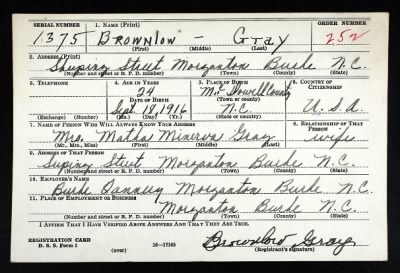 SERIAL NUMBER 1. NAME (Print) ORDER NUMBER
1375 BROWNLOW — GRAY 252
(First) (Middle) (Last)
2. ADDRESS (Print)
Street Morganton Burke N.C.
(Number and street or R. F. D. number) (Town) (County) (State)
3. TELEPHONE 4. AGE IN YEARS 5. PLACE OF BIRTH 6. COUNTRY OF CITIZENSHIP
24 McDowell County
DATE OF BIRTH (Town or county)
Sept 18 1916 N.C. U.S.A.
(Exchange) (Number) (Mo.) (Day) (Yr.) (State or country)
7. NAME OF PERSON WHO WILL ALWAYS KNOW YOUR ADDRESS 8. RELATIONSHIP OF THAT PERSON
Mrs. Matha Minerva Gray wife
(Mr., Mrs., Miss) (First) (Middle) (Last)
9. ADDRESS OF THAT PERSON
Street Morganton Burke N.C.
(Number and street or R. F. D. number) (Town) (County) (State)
10. EMPLOYER'S NAME
Burke Tannery Morganton Burke N.C.
11. PLACE OF EMPLOYMENT OR BUSINESS
Morganton Burke N.C.
(Number and street or R. F. D. number) (Town) (County) (State)
I AFFIRM THAT I HAVE VERIFIED ABOVE ANSWERS AND THAT THEY ARE TRUE.
REGISTRATION CARD
D. S. S. Form 1 (over) 16—17105 Brownlow Gray
(Registrant's signature)